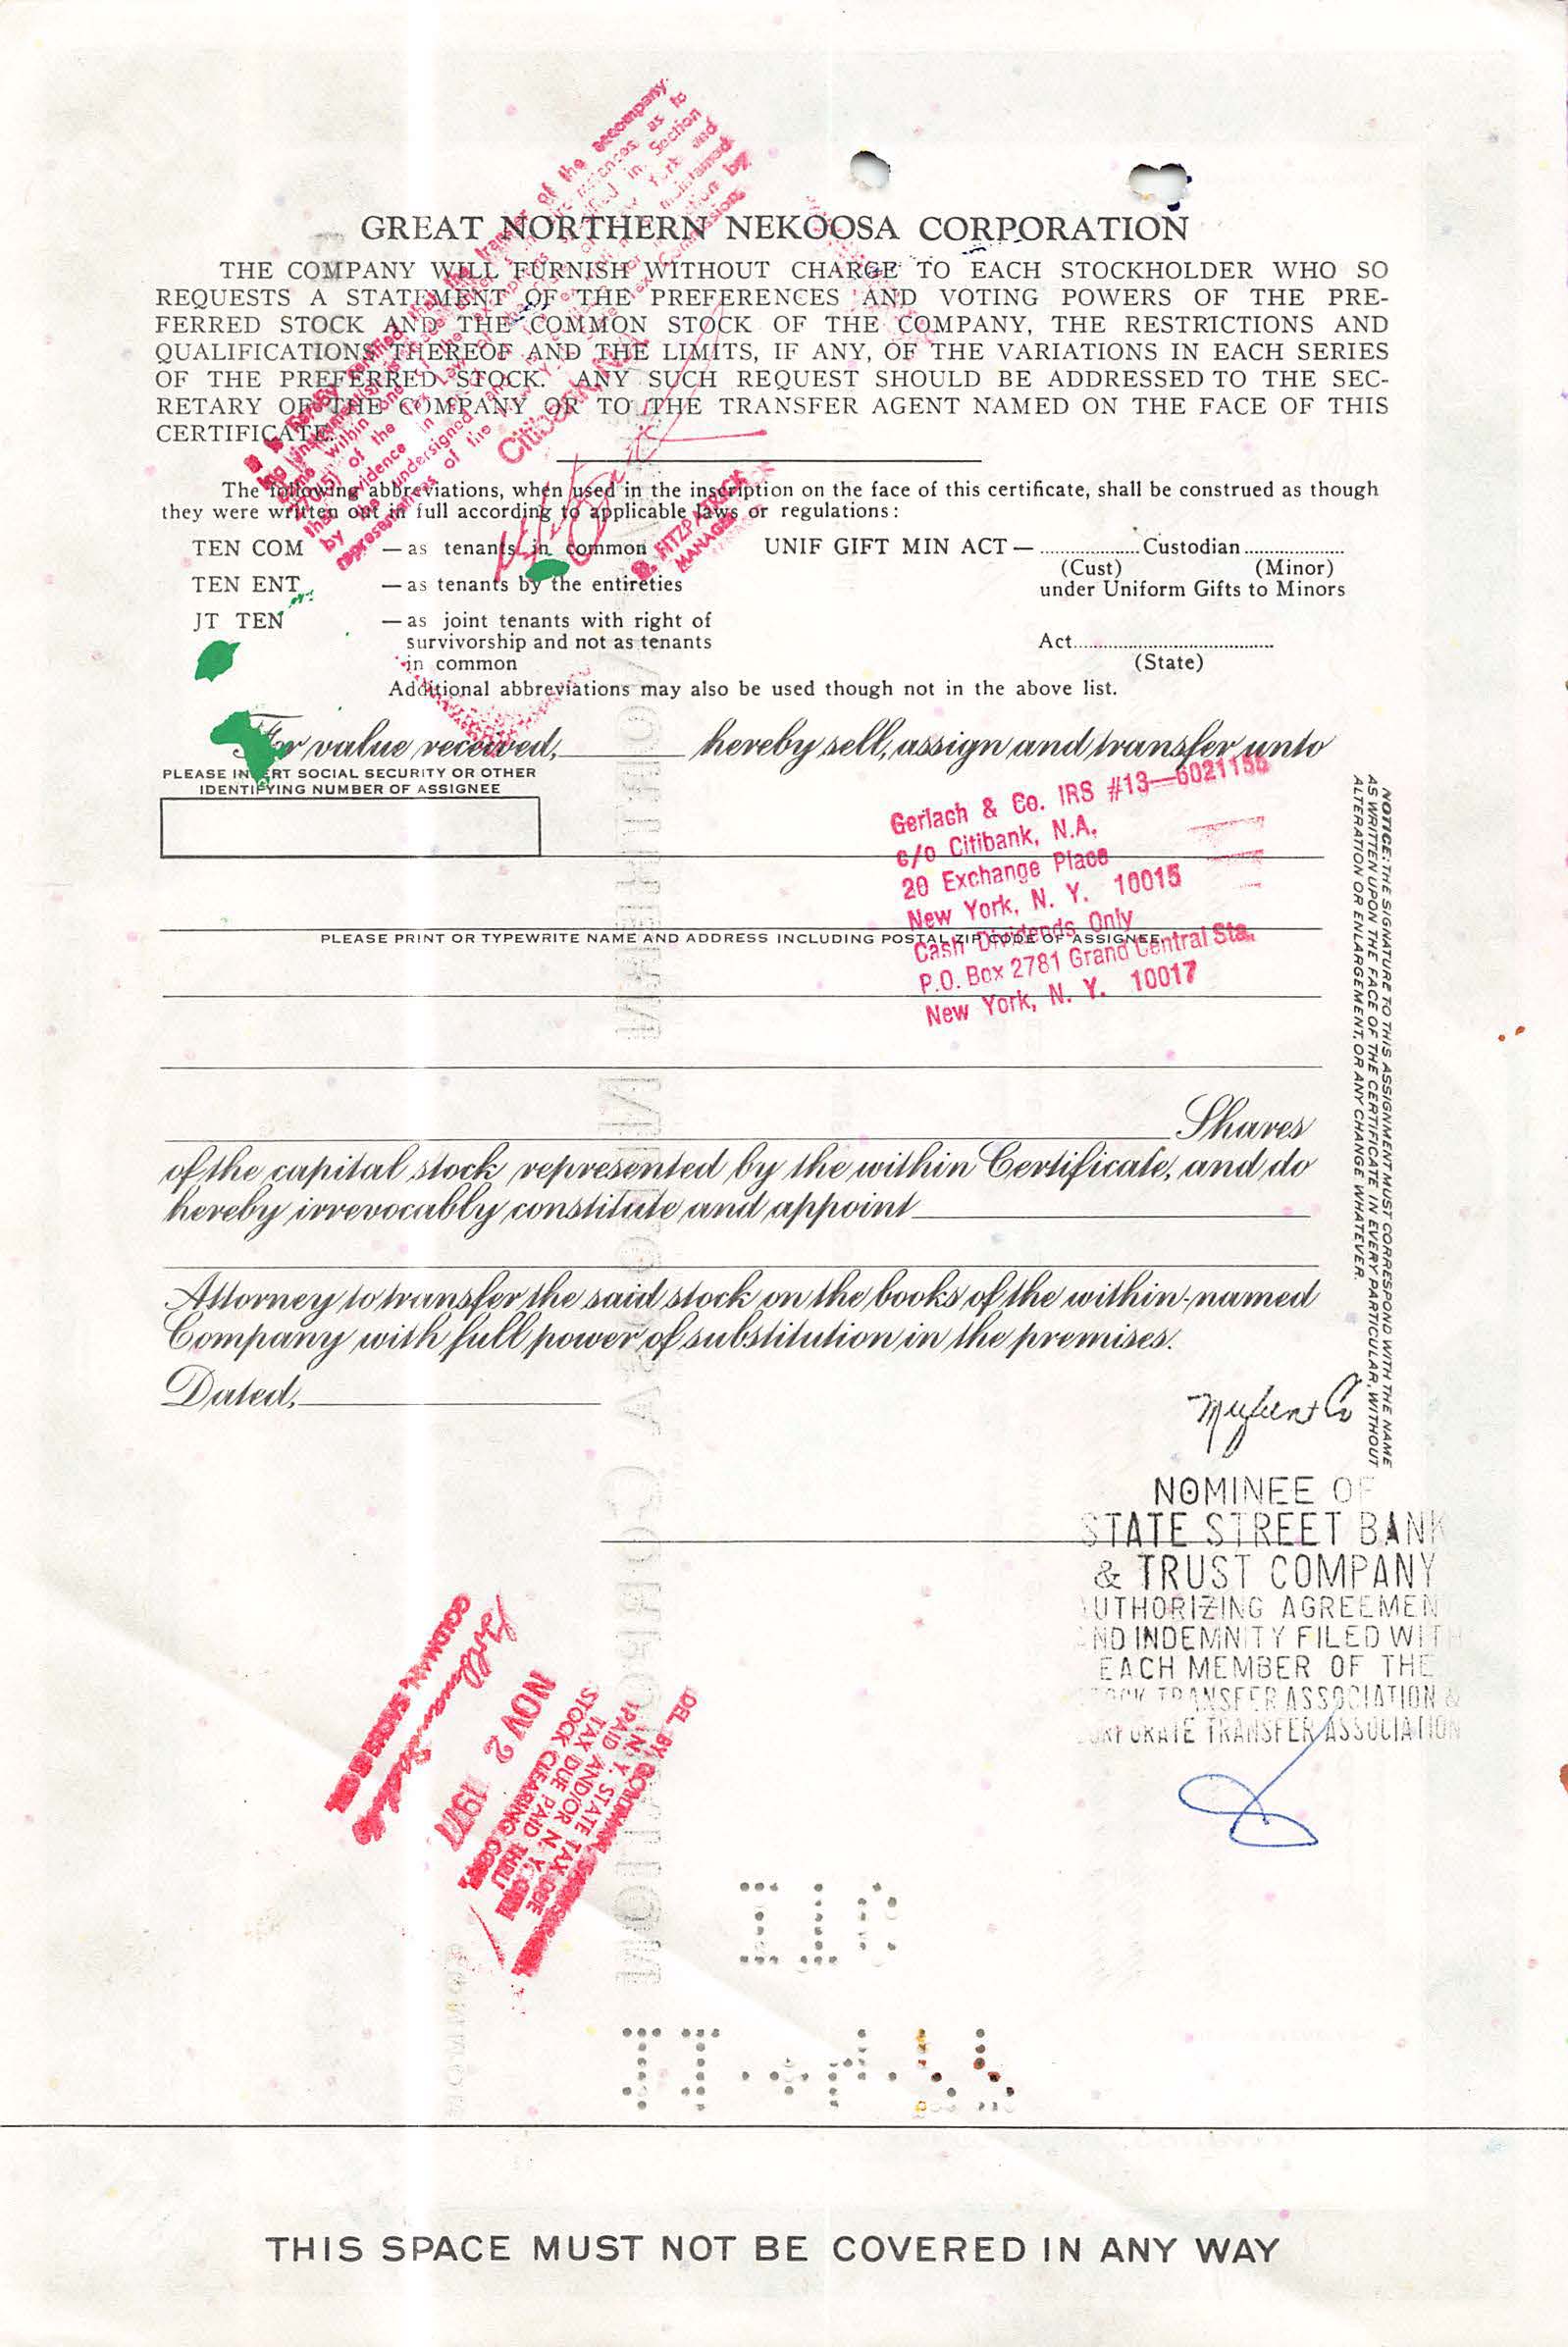 GREAT NORTHERN NEKOOSA CORPORATION
THE COMPANY WILL FURNISH WITHOUT CHARGE TO EACH STOCKHOLDER WHO SO
REQUESTS A STATEMENT OF THE PREFERENCES AND VOTING POWERS OF THE PRE-
FERRED STOCK AND THE COMMON STOCK OF THE COMPANY, THE RESTRICTIONS AND
QUALIFICATIONS THEREOF AND THE LIMITS, IF ANY, OF THE VARIATIONS IN EACH SERIES
OF THE PREFERRED STOCK. ANY SUCH REQUEST SHOULD BE ADDRESSED TO THE SEC-
RETARY OF THE COMPANY OR TO THE TRANSFER AGENT NAMED ON THE FACE OF THIS
CERTIFICATE.
Citibank, N.A.
FITZPATRICK
MANAGER
The following abbreviations, when used in the inscription on the face of this certificate, shall be construed as though
they were written out in full according to applicable laws or regulations:
TEN COM — as tenants in common UNIF GIFT MIN ACT — ....................Custodian....................
(Cust) (Minor)
TEN ENT — as tenants by the entireties under Uniform Gifts to Minors
JT TEN — as joint tenants with right of
survivorship and not as tenants Act........................................
in common (State)
Additional abbreviations may also be used though not in the above list.
For value received, hereby sell, assign and transfer unto
PLEASE INSERT SOCIAL SECURITY OR OTHER
IDENTIFYING NUMBER OF ASSIGNEE
Gerlach & Co. IRS #13—6021155
c/o Citibank, N.A.
20 Exchange Place
New York, N. Y. 10015
Cash Dividends Only
P.O. Box 2781 Grand Central Sta.
New York, N. Y. 10017
PLEASE PRINT OR TYPEWRITE NAME AND ADDRESS INCLUDING POSTAL ZIP CODE OF ASSIGNEE
Shares
of the capital stock represented by the within Certificate, and do
hereby irrevocably constitute and appoint
Attorney to transfer the said stock on the books of the within-named
Company with full power of substitution in the premises.
Dated,
NOTICE: THE SIGNATURE TO THIS ASSIGNMENT MUST CORRESPOND WITH THE NAME
AS WRITTEN UPON THE FACE OF THE CERTIFICATE IN EVERY PARTICULAR, WITHOUT
ALTERATION OR ENLARGEMENT, OR ANY CHANGE WHATEVER.
NOMINEE OF
STATE STREET BANK
& TRUST COMPANY
AUTHORIZING AGREEMENT
AND INDEMNITY FILED WITH
EACH MEMBER OF THE
STOCK TRANSFER ASSOCIATION &
CORPORATE TRANSFER ASSOCIATION
GOLDMAN, SACHS & CO.
NOV 2 1977
DEL. BY GOLDMAN, SACHS
N. Y. STATE TAX DUE
PAID AND/OR N. Y.
TAX DUE PAID THRU
STOCK CLEARING CORP.
THIS SPACE MUST NOT BE COVERED IN ANY WAY